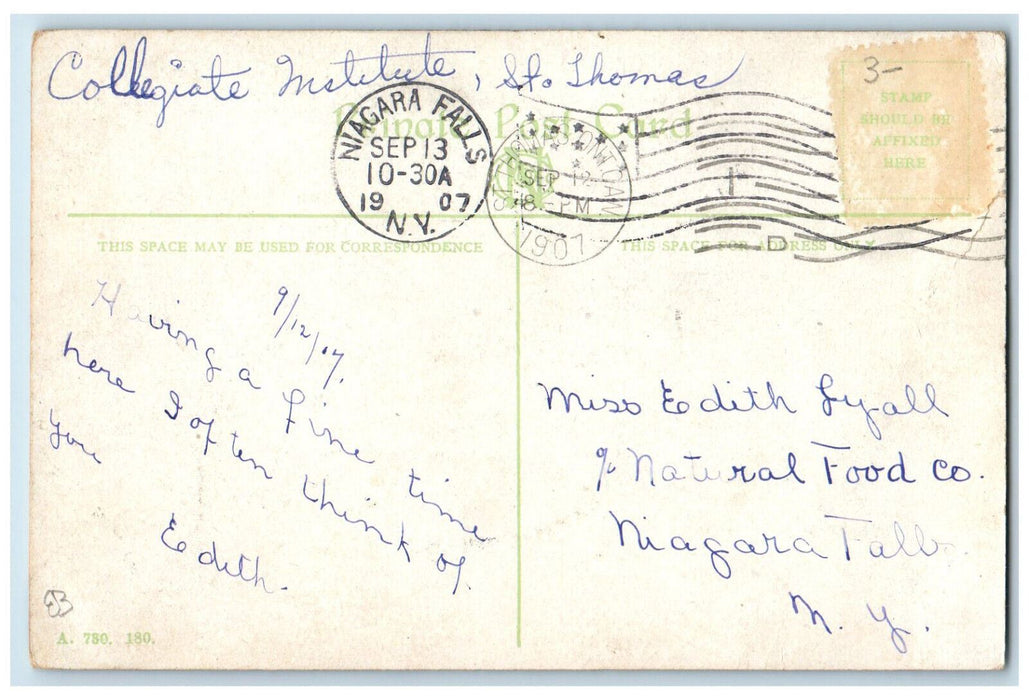 Collegiate Institute, St. Thomas
Private Post Card
NIAGARA FALLS
SEP 13
10-30A
19 07
N.Y.
ST. THOMAS, ONT. CAN
SEP 12
18-PM
1907
D
3-
STAMP
SHOULD BE
AFFIXED
HERE
THIS SPACE MAY BE USED FOR CORRESPONDENCE
THIS SPACE FOR ADDRESS ONLY
9/12/07.
Having a fine time
here I often think of
you
Edith.
Miss Edith Lyall
c/o Natural Food Co.
Niagara Falls
N. Y.
EB
A. 730. 180.